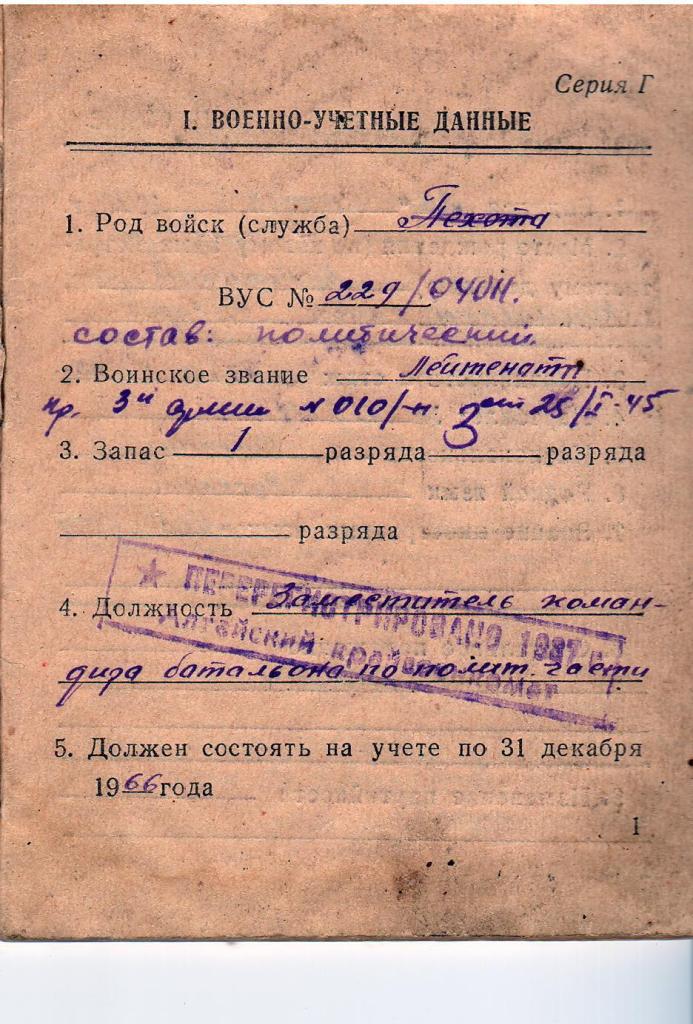 Серия Г
I. ВОЕННО-УЧЕТНЫЕ ДАННЫЕ
1. Род войск (служба) Пехота
ВУС № 229/040Н.
состав: политический
2. Воинское звание Лейтенант
пр. 3й армии №010/н от 25/I-45
3. Запас 1 разряда 3 разряда
разряда
4. Должность Заместитель коман-
дира батальона по полит. части
★ ПЕРЕРЕГИСТРИРОВАНО
Алтайский крайвоенкомат
5. Должен состоять на учете по 31 декабря
1966 года
1